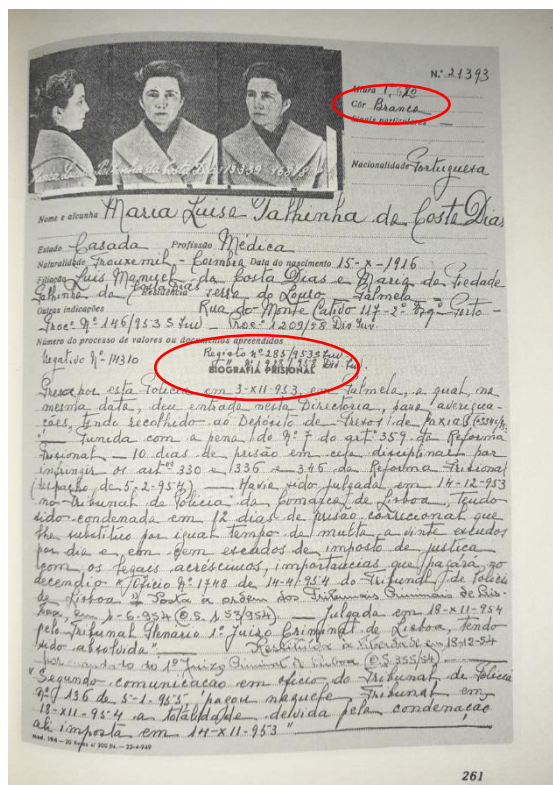 N.º 21393
Altura 1,620
Côr Branca
Sinais particulares —
Nacionalidade Portuguesa
Nome e alcunha Maria Luisa Palhinha da Costa Dias
Estado Casada Profissão Médica
Naturalidade Trouxemil - Coimbra Data do nascimento 15-X-1916
Filiação Luis Manuel da Costa Dias e Maria da Piedade
Palhinha da Costa Dias Residência
Outras indicações Rua do Monte Cativo 117-2º
Procº Nº 146/953 Proc 1209/58
Número do processo de valores ou documentos apreendidos
Negativo Nº 14310 Registo nº 285/953
BIOGRAFIA PRISIONAL
Presa por esta Policia em 3-XII-953, em Palmela, a qual, na
mesma data, deu entrada nesta Directoria, para averigua-
ções, tendo recolhido ao Depósito de Presos de Caxias
Punida com a pena do nº 7 do artº 359 da Reforma
Prisional — 10 dias de prisão em cela disciplinar por
infringir os artºs 330 e 336 e 346 da Reforma Prisional
(despacho de 5-2-954) — Havia sido julgada em 14-12-953
no Tribunal de Policia da Comarca de Lisboa, tendo
sido condenada em 12 dias de prisão correcional que
lhe substituio por igual tempo de multa a vinte escudos
por dia e em cem escudos de imposto de justiça
com os legais acréscimos, importancias que pagará no
decendio "(Oficio Nº 1748 de 14-4-954 do Tribunal de Policia
de Lisboa Posta à ordem dos Tribunais Criminais de Lis-
boa, em 1-6-954 (O.S. 153/954) — Julgada em 18-XII-954
pelo Tribunal Plenário 1º Juizo Criminal de Lisboa, tendo
sido absolvida" — Restituida à liberdade em 18-12-54
por mandato do 1º Juizo Criminal de Lisboa (O.S. 355/54)
"Segundo comunicacao em oficio do Tribunal de Policia
nº 136 de 5-1-955, pagou naquele Tribunal em
18-XII-954 a totalidade devida pela condenação
ali imposta em 14-XII-953"
261